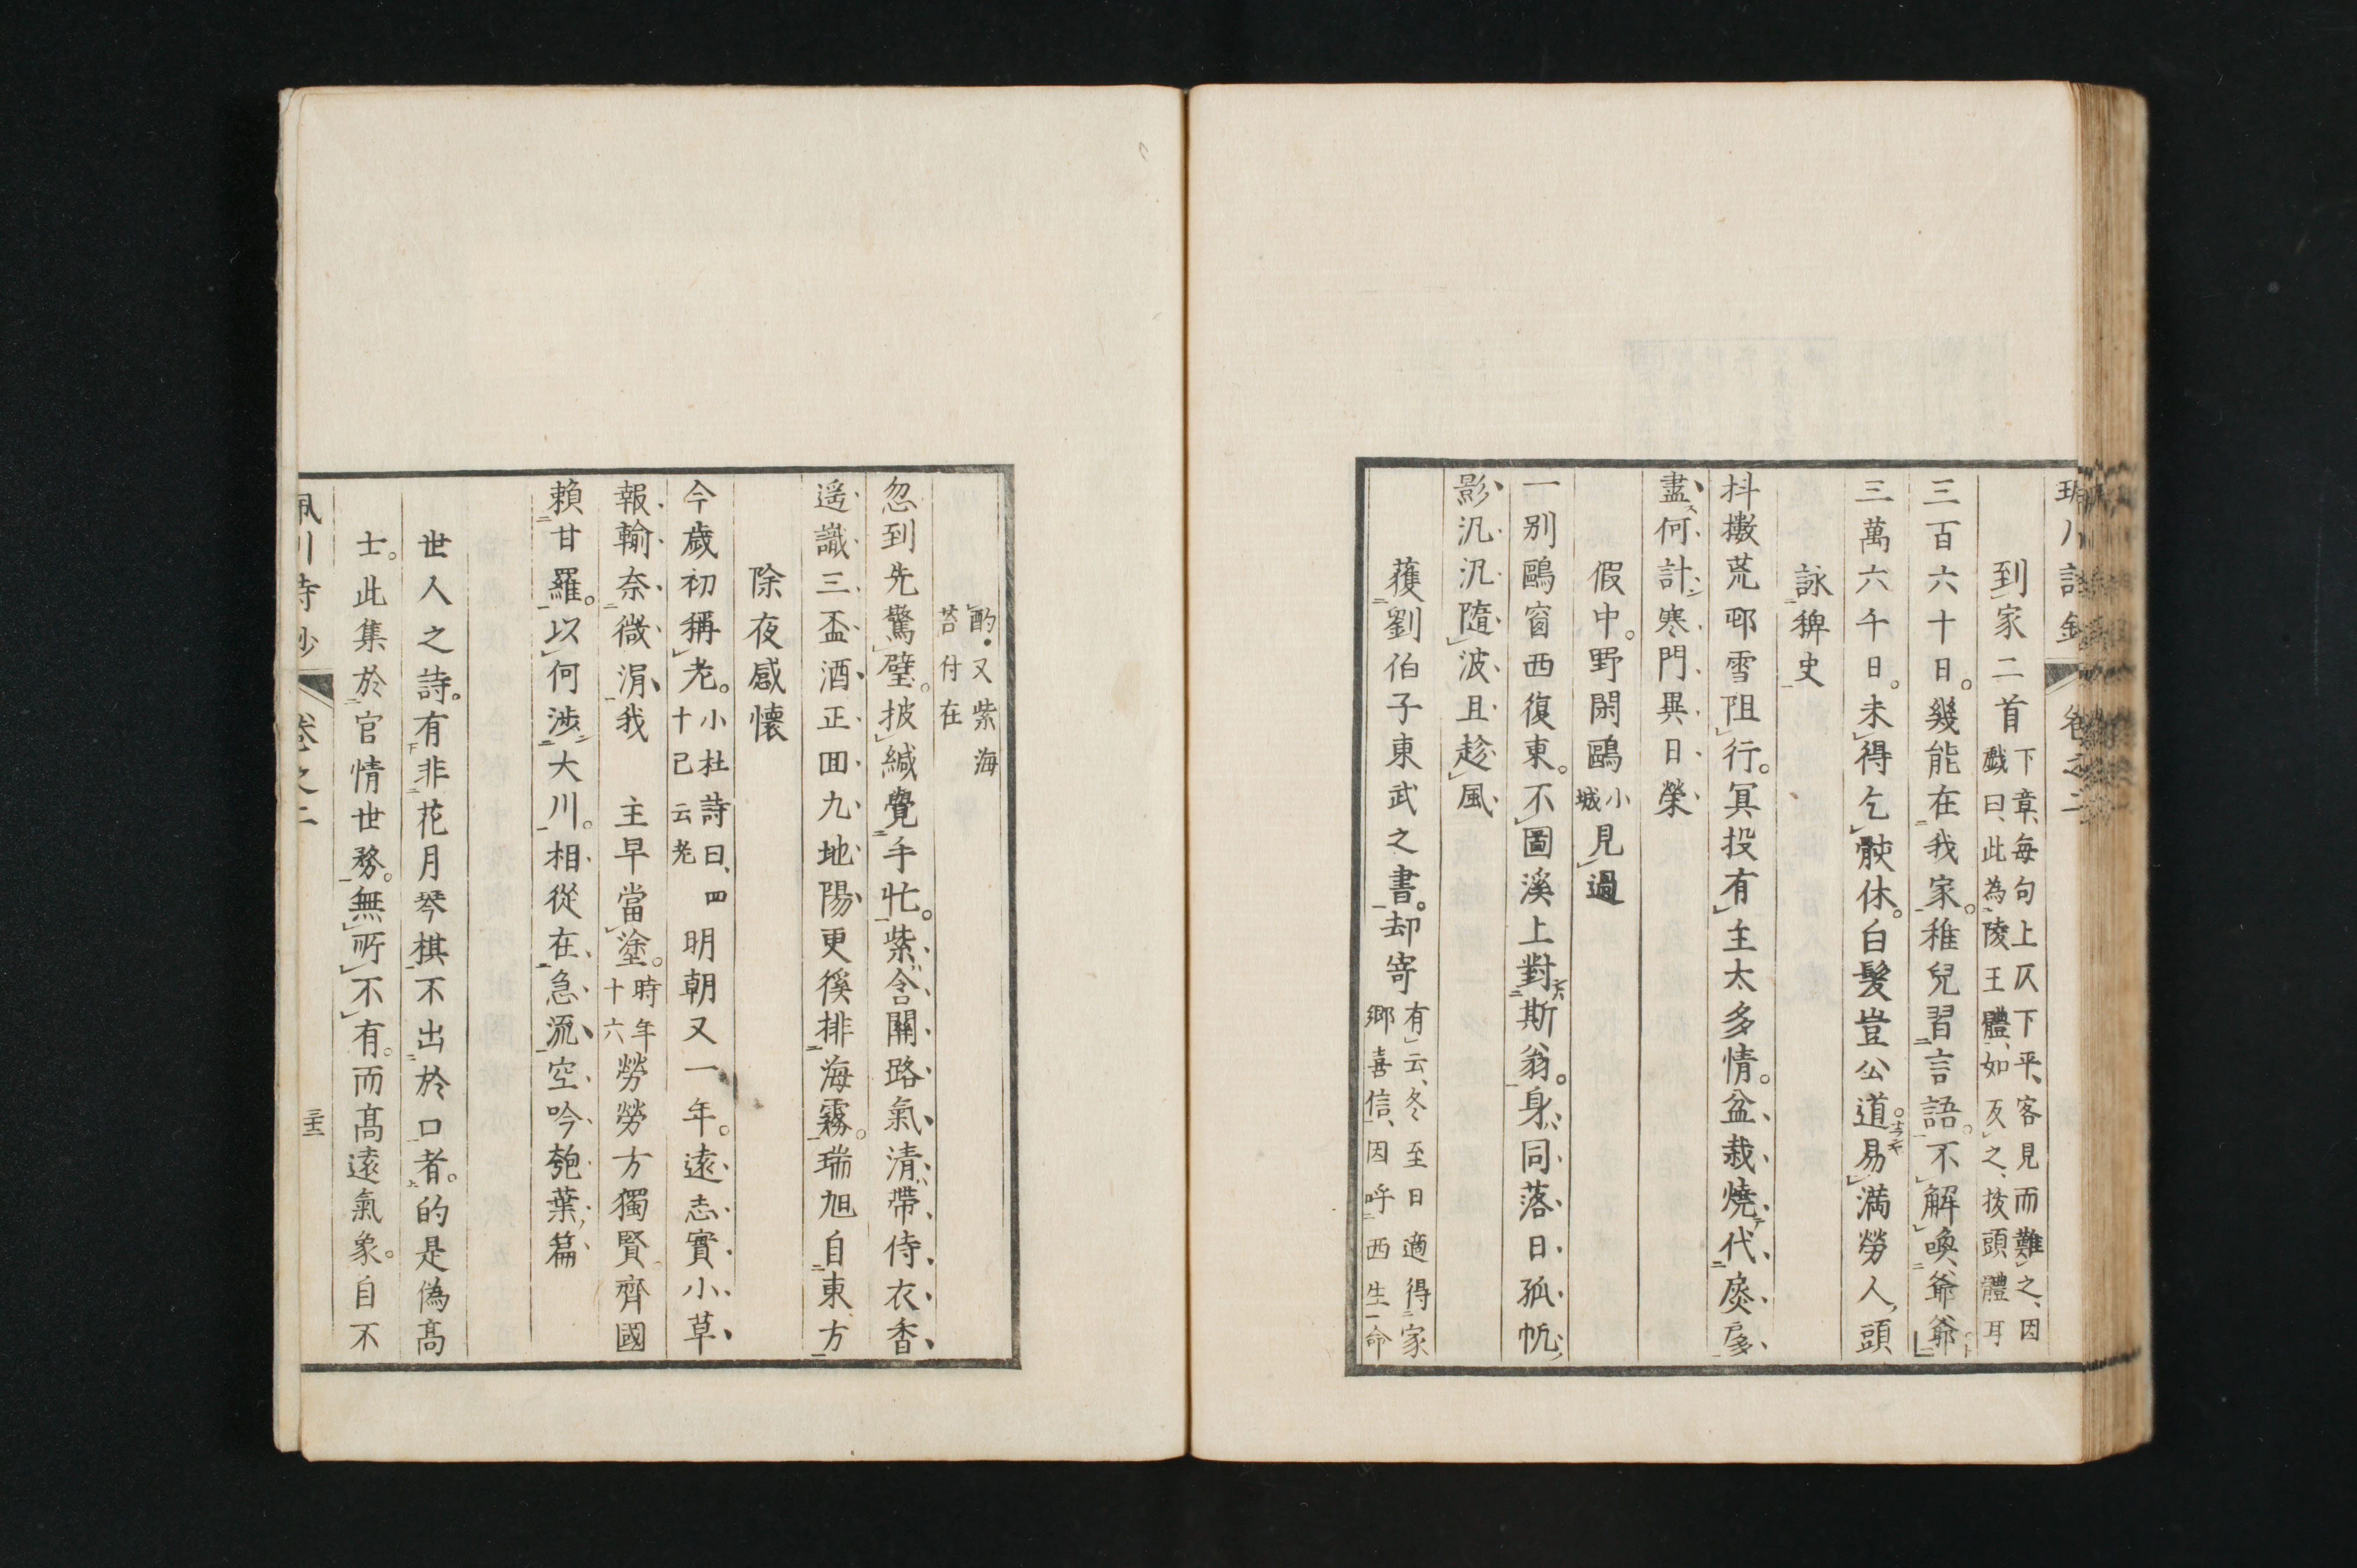 到家二首 下章、每句上仄下平、客見而難之、因
戲曰、此為陵王體、如反之、拔頭體耳
三百六十日。幾能在我家。稚兒習言語。不解喚爺爺
三萬六千日。未得乞骸休。白髮豈公道。易滿勞人頭
詠稗史
抖擻荒邨雪阻行。冥投有主太多情。盆栽燒代扊扅
盡何計寒門異日榮
假中。野閑鷗 小
城 見過
一別鷗窗西復東。不圖溪上對斯翁。身同落日孤帆
影汎汎隨波且趁風
蓰劉伯子東武之書。却寄 有云、冬至日適得家
鄉喜信、因呼西生命
酌・又紫海
苔付在
忽到先驚璧。披緘覺手忙。紫含關路氣清帶侍衣香
遙識三盃酒正回九地陽更徯排海霧。瑞旭自東方
除夜感懷
今歲初稱老。小杜詩曰、四
十已云老 明朝又一年。遠志實小草
報輸奈微涓我 主早當塗。時年
十六 勞勞方獨賢。齊國
賴甘羅。以何涉大川。相從在急流空吟匏葉篇
世人之詩。有非花月琴棋不出於口者。的是偽高
士。此集於官情世務。無所不有。而高遠氣象。自不
卷之二